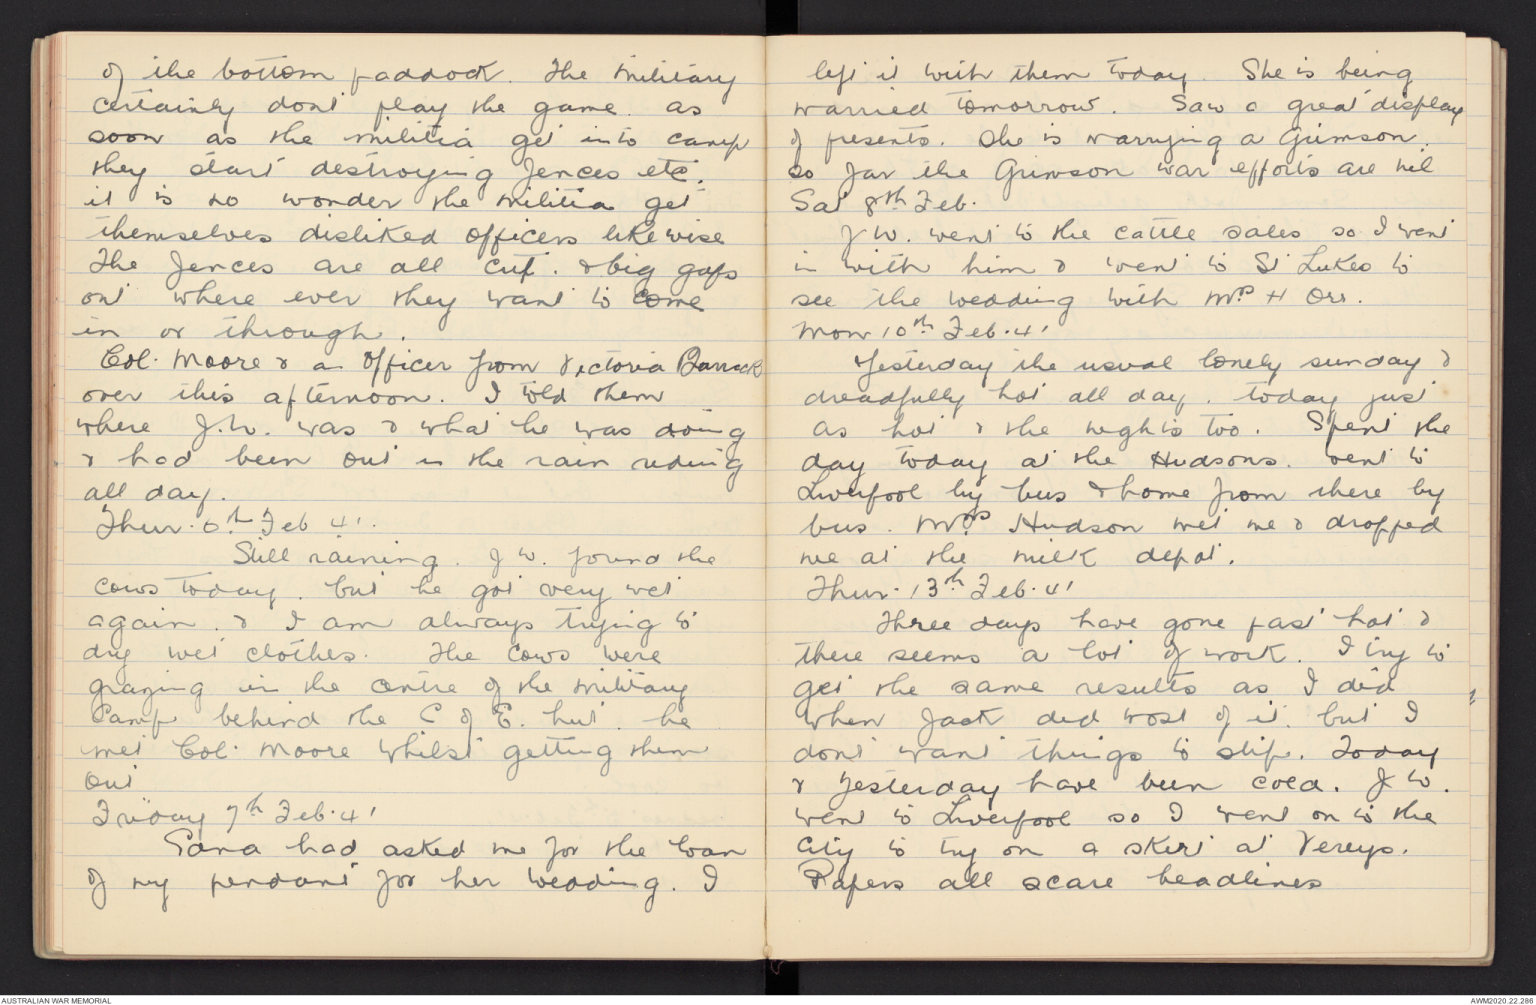 of the bottom paddock. The Military
certainly dont play the game. as
soon as the militia get into camp
they start destroying fences etc.
it is no wonder the militia get
themselves disliked officers likewise
The fences are all cut. & big gaps
out where ever they want to come
in or through.
Col. Moore & an Officer from Victoria Barracks
over this afternoon. I told them
where J.W. was & what he was doing
& had been out in the rain riding
all day.
Thur. 6th Feb 41.
Still raining. J W. found the
cows today. but he got very wet
again. & I am always trying to
dry wet clothes. The cows were
grazing in the centre of the military
Camp behind the C of E. hut. he
met Col. Moore whilst getting them
out
Friday 7th Feb. 41
had asked me for the loan
of my pendant for her wedding. I
left it with them today. She is being
married tomorrow. Saw a great display
of presents. She is marrying a Grimson.
so far the Grimson war efforts are nil
Sat 8th Feb.
J W. went to the cattle sales so I went
in with him & went to St Lukes to
see the wedding with Mrs H Orr.
Mon 10th Feb. 41
Yesterday the usual lonely sunday &
dreadfully hot all day. today just
as hot & the nights too. Spent the
day today at the Hudsons. went to
Liverpool by bus & home from there by
bus. Mrs Hudson met me & dropped
me at the milk depot.
Thur. 13th Feb. 41
Three days have gone past hot &
there seems a lot of work. I try to
get the same results as I did
when Jack did most of it. but I
dont want things to slip. Today
& Yesterday have been cold. J W.
went to Liverpool so I went on to the
City to try on a skirt at Vereys.
Papers all scare headlines
AUSTRALIAN WAR MEMORIAL
AWM2020.22.286